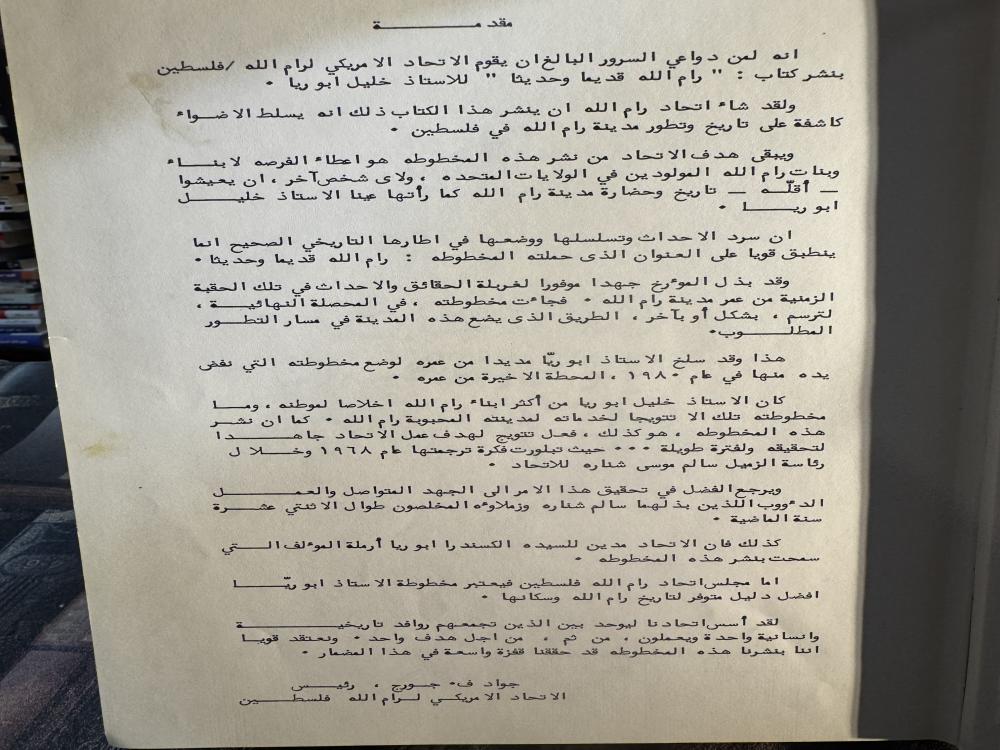 مقدمـــــــــة
انه لمن دواعي السرور البالغ ان يقوم الاتحاد الامريكي لرام الله /فلسطين
بنشر كتاب : " رام الله قديما وحديثا " للاستاذ خليل ابو ريا ٠
ولقد شاء اتحاد رام الله ان ينشر هذا الكتاب ذلك انه يسلط الاضـــواء
كاشفة على تاريخ وتطور مدينة رام الله في فلسطين ٠
ويبقى هدف الاتحاد من نشر هذه المخطوطه هو اعطاء الفرصه لابنـــاء
وبنات رام الله المولودين في الولايات المتحده ، ولاى شخص آخر ، ان يعيشوا
ــ أقلّــه ــ تاريخ وحضارة مدينة رام الله كما رأتها عينا الاستاذ خليـــل
ابو ريـــا ٠
ان سرد الاحداث وتسلسلها ووضعها في اطارها التاريخي الصحيح انما
ينطبق قويا على العنوان الذى حملته المخطوطه : رام الله قديما وحديثا ٠
وقد بذل الموٴرخ جهدا موفورا لغربلة الحقائق والاحداث في تلك الحقبة
الزمنية من عمر مدينة رام الله ٠ فجاءت مخطوطته ، في المحصلة النهائيـــة ،
لترسم ، بشكل أو بآخر ، الطريق الذى يضع هذه المدينة في مسار التطـــور
المطلـــوب٠
هذا وقد سلخ الاستاذ ابو ريّا مديدا من عمره لوضع مخطوطته التي نفض
يده منها في عام ١٩٨٠ ، المحطة الاخيرة من عمره ٠
كان الاستاذ خليل ابو ريا من أكثر ابناء رام الله اخلاصا لموطنه ، ومـــا
مخطوطته تلك الا تتويجا لخدماته لمدينته المحبوبة رام الله ٠ كما ان نشـــر
هذه المخطوطه ، هو كذلك ، فعـل تتويج لهدف عمل الاتحاد جاهـــدا
لتحقيقه ولفترة طويلة ٠٠٠ حيث تبلورت فكرة ترجمتها عام ١٩٦٨ وخـــلال
رئاسة الزميل سالم موسى شناره للاتحاد ٠
ويرجع الفضل في تحقيق هذا الامر الى الجهد المتواصل والعمـــل
الدءووب اللذين بذلهما سالم شناره وزملاوٴه المخلصون طوال الاثنتي عشـــرة
سنة الماضية ٠
كذلك فان الاتحاد مدين للسيده الكسندرا ابو ريا أرملة الموٴلف التـــي
سمحت بنشر هذه المخطوطه ٠
اما مجلس اتحاد رام الله فلسطين فيعتبر مخطوطة الاستاذ ابو ريّـــا
افضل دليل متوفر لتاريخ رام الله وسكانها ٠
لقد أسس اتحادنا ليوحد بين الذين تجمعهم روافد تاريخيـــة
وانسانية واحدة ويعملون ، من ثم ، من اجل هدف واحد ٠ ونعتقد قويـــا
اننا بنشرنا هذه المخطوطه قد حققنا قفزة واسعة في هذا المضمار ٠
جواد ف٠ جـــورج ، رئيـــس
الاتحاد الامريكي لـــرام الله فلسطـــين